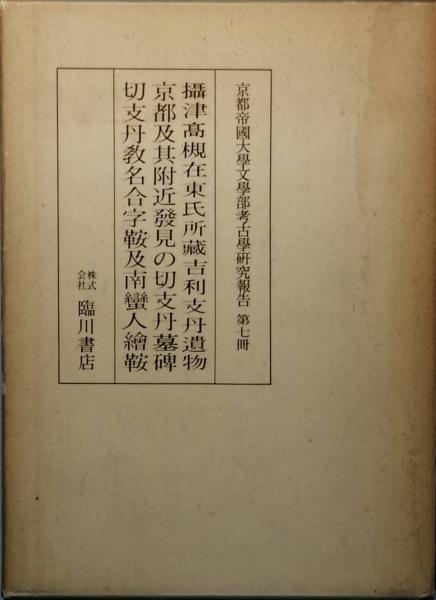 京都帝國大學文學部考古學研究報告 第七冊
攝津高槻在東氏所藏吉利支丹遺物
京都及其附近發見の切支丹墓碑
切支丹敎名合字鞍及南蠻人繪鞍
株式会社 臨川書店